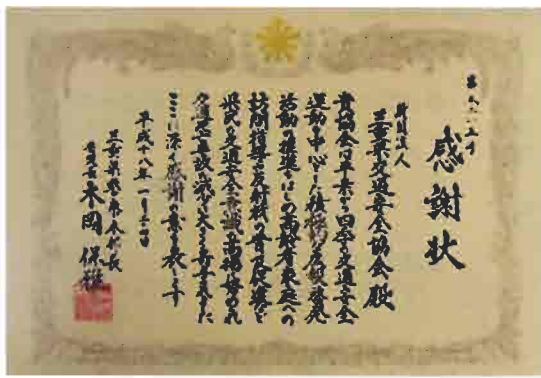 感謝状
財団法人
三重県交通安全協会殿
貴協会は平素から四季の交通安全
運動を中心とした積極的な広報啓発
活動の推進をはじめ高齢者家庭への
訪問指導や反射材の普及促進など
県民の交通安全意識の高揚に努められ
交通事故の減少に大きく寄与されました
ここに深く感謝の意を表します
平成十八年一月
木岡保雅